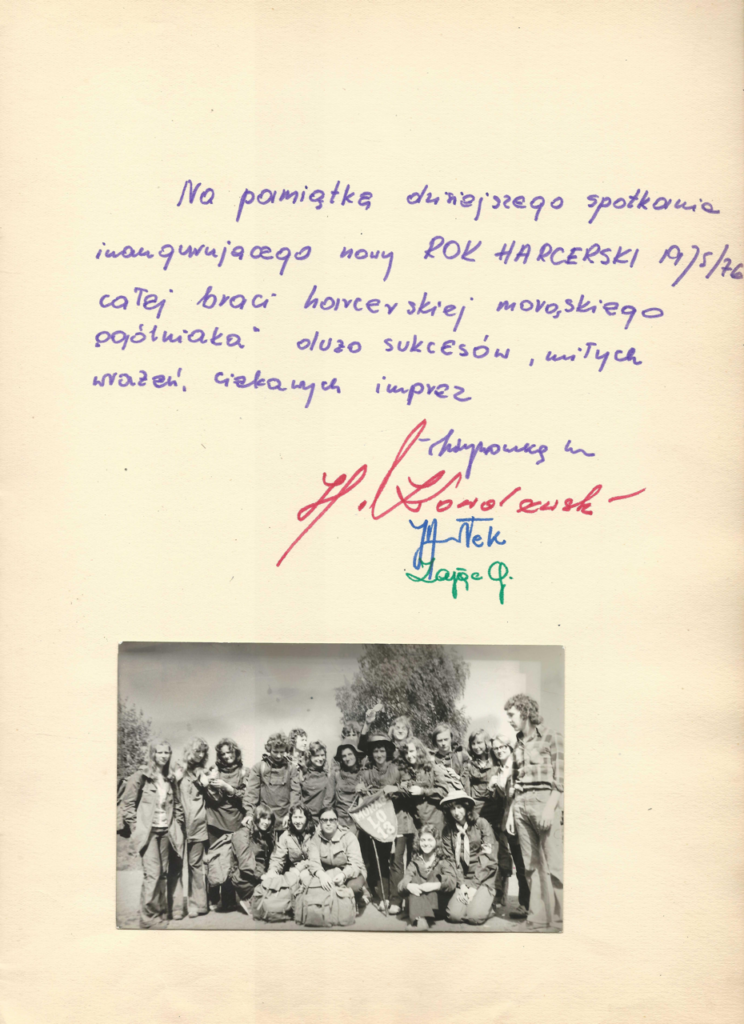 Na pamiątkę dzisiejszego spotkania
inaugurującego nowy ROK HARCERSKI 1975/76
całej braci harcerskiej morąskiego
"ogólniaka" dużo sukcesów, miłych
wrażeń, ciekawych imprez
H. Kowalewski
Zając G.
LO